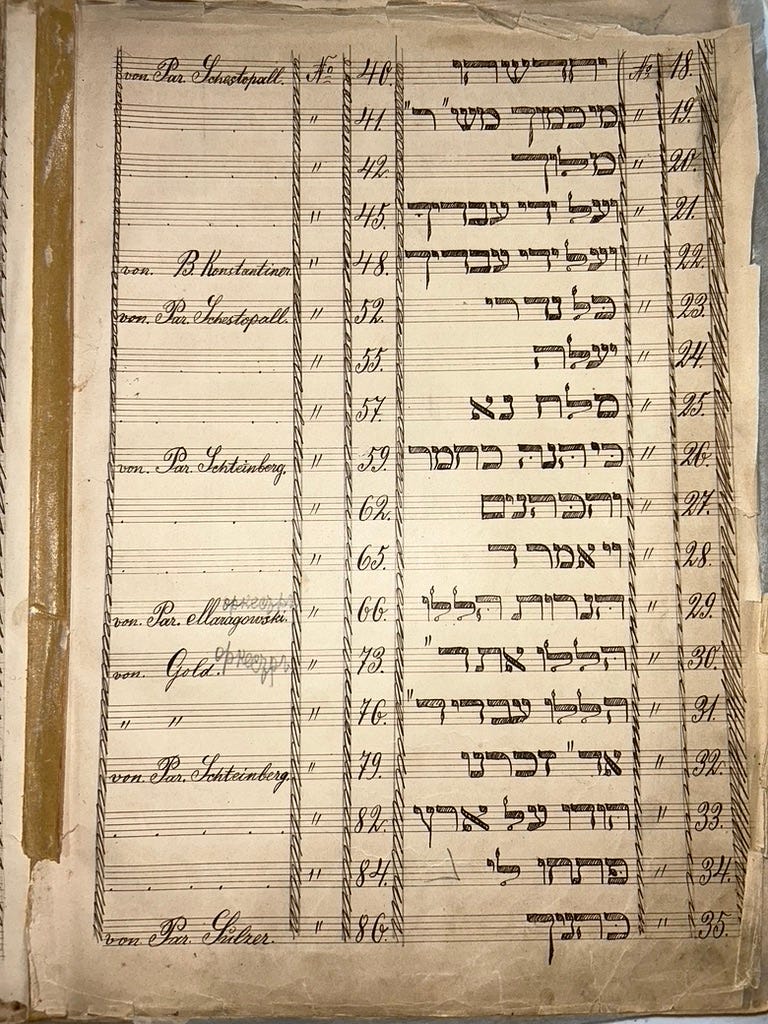 von Par. Schestopall. No 40. יחדשיהו No 18.
" 41. מיכמוך מש"ר" " 19.
" 42. מלוך " 20.
" 45. ועל ידי עבדיך " 21.
von. B. Konstantiner " 48. ועל ידי עבדיך " 22.
von. Par. Schestopall. " 52. כל נדרי " 23.
" 55. יעלה " 24.
" 57. סלח נא " 25.
von. Par. Schteinberg. " 59. כי הנה כחמר " 26.
" 62. והכהנים " 27.
" 65. ויאמר ד " 28.
оркестръ
von. Par. Maragowski. " 66. הנרות הללו " 29.
оркестръ
von. Gold. " 73. הללו את ד" " 30.
" " " 76. הללו עבדי ד" " 31.
von. Par. Schteinberg. " 79. אד" זכרנו " 32.
" 82. הודו על ארץ " 33.
" 84. פתחו לי " 34.
von Par. Sulzer. " 86. כהניך " 35.